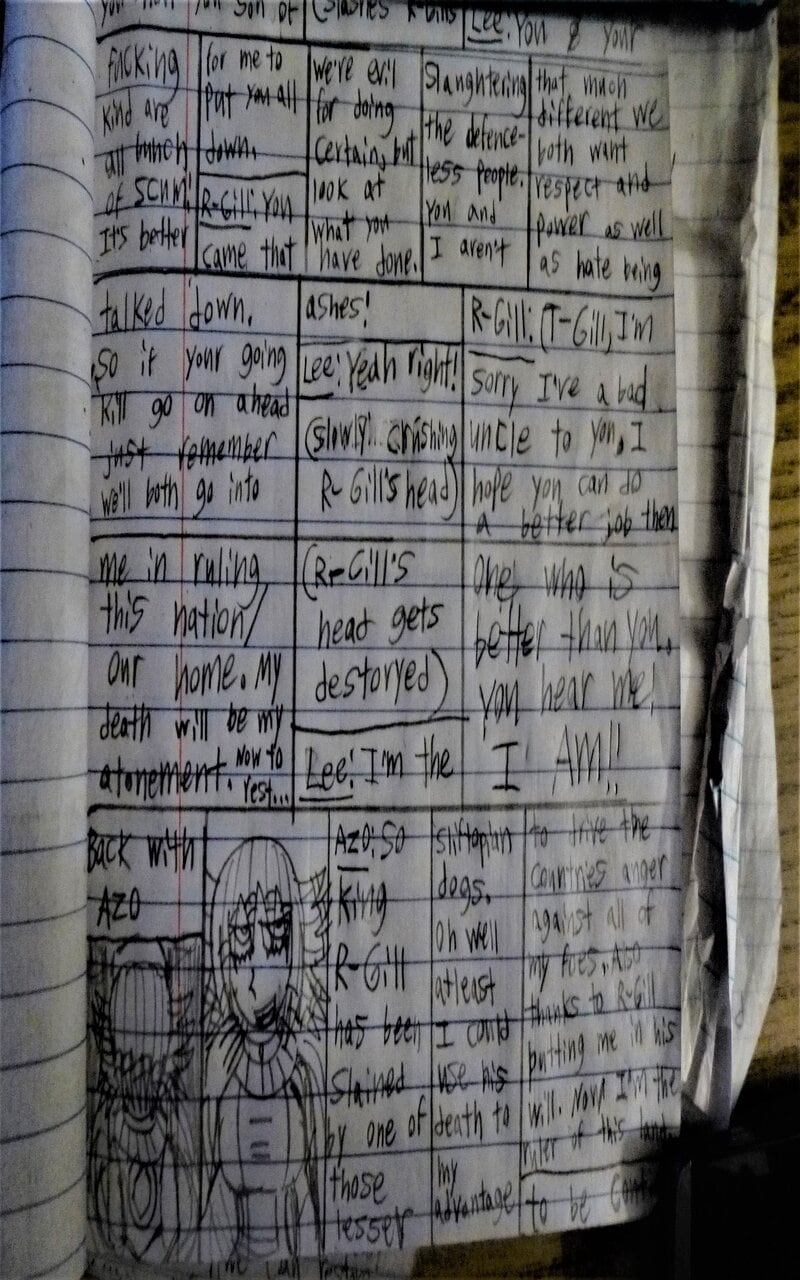 Lee: You & your
fucking
kind are
all bunch
of scum!
It's better
for me to
put you all
down.
R-Gill: You
came that
we're evil
for doing
certain, but
look at
what you
have done.
Slanghtering
the defence-
less people.
You and
I aren't
that much
different we
both want
respect and
power as well
as hate being
talked down.
So if your going
kill go on ahead
just remember
we'll both go into
ashes!
Lee: Yeah right!
(slowly crushing
R-Gill's head)
R-Gill: (T-Gill, I'm
sorry I've a bad
uncle to you, I
hope you can do
a better job then
me in ruling
this nation/
our home. My
death will be my
atonement. Now to
rest...
(R-Gill's
head gets
destoryed)
Lee: I'm the
one who is
better than you.
You hear me!
I AM!!
Back with
Azo
Azo: So
King
R-Gill
has been
slained
by one of
those
lesser
shiftopian
dogs.
Oh well
atleast
I could
use his
death to
my
advantage
to drive the
countries anger
against all of
my foes. Also
thanks to R-Gill
putting me in his
will. Now I'm the
ruler of this land.
to be